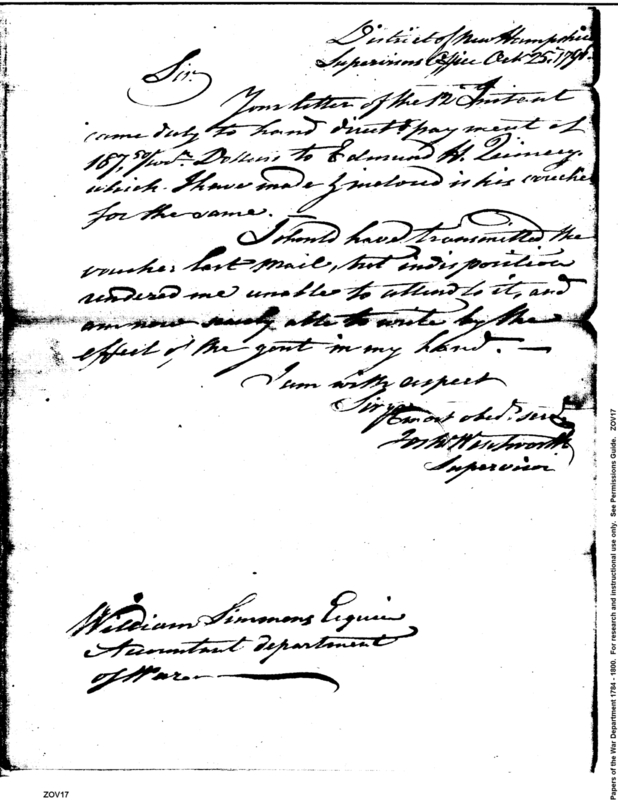 District of New Hampshire
Supervisors Office Octr 25th 179
Sir
Your letter of the 12th Instant
came duly to hand direct payment of
187, 50/100 Dollars to Edmund H. Quincy
which I have made & inclosed is his voucher
for the same.
I should have transmitted the
voucher last mail, but indisposition
rendered me unable to attend to it, and
am now able to write by the
effect of the gout in my hand. —
I am with respect
Sir your
most obedt servt
Josh Wentworth
Supervisor
William Simmons Esquire
Accountant department
of War
ZOV17
Papers of the War Department 1784 - 1800. For research and instructional use only. See Permissions Guide. ZOV17